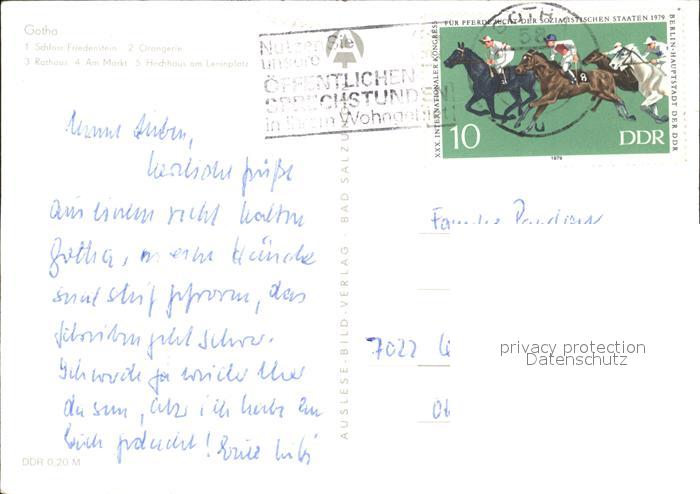 Gotha
1 Schloss Friedenstein 2 Orangerie
3 Rathaus 4 Am Markt 5 Hochhaus am Leninplatz
Nutzen Sie
unsere
ÖFFENTLICHEN
SPRECHSTUND
in Ihrem Wohngebi
XXX. INTERNATIONALER KONGRESS FÜR PFERDEZUCHT DER SOZIALISTISCHEN STAATEN 1979
BERLIN-HAUPTSTADT DER DDR
8
10 DDR
1979
GOTH
58
Meine Lieben,
herzliche Grüße
aus einem recht kalten
Gotha, meine Hände
sind steif gefroren, das
Schreiben geht schwer.
Ich werde ja wieder
da sein, ich habe an
Euch gedacht! Eure
AUSLESE-BILD-VERLAG · BAD SALZU
Familie
7022
privacy protection
Datenschutz
DDR 0,20 M